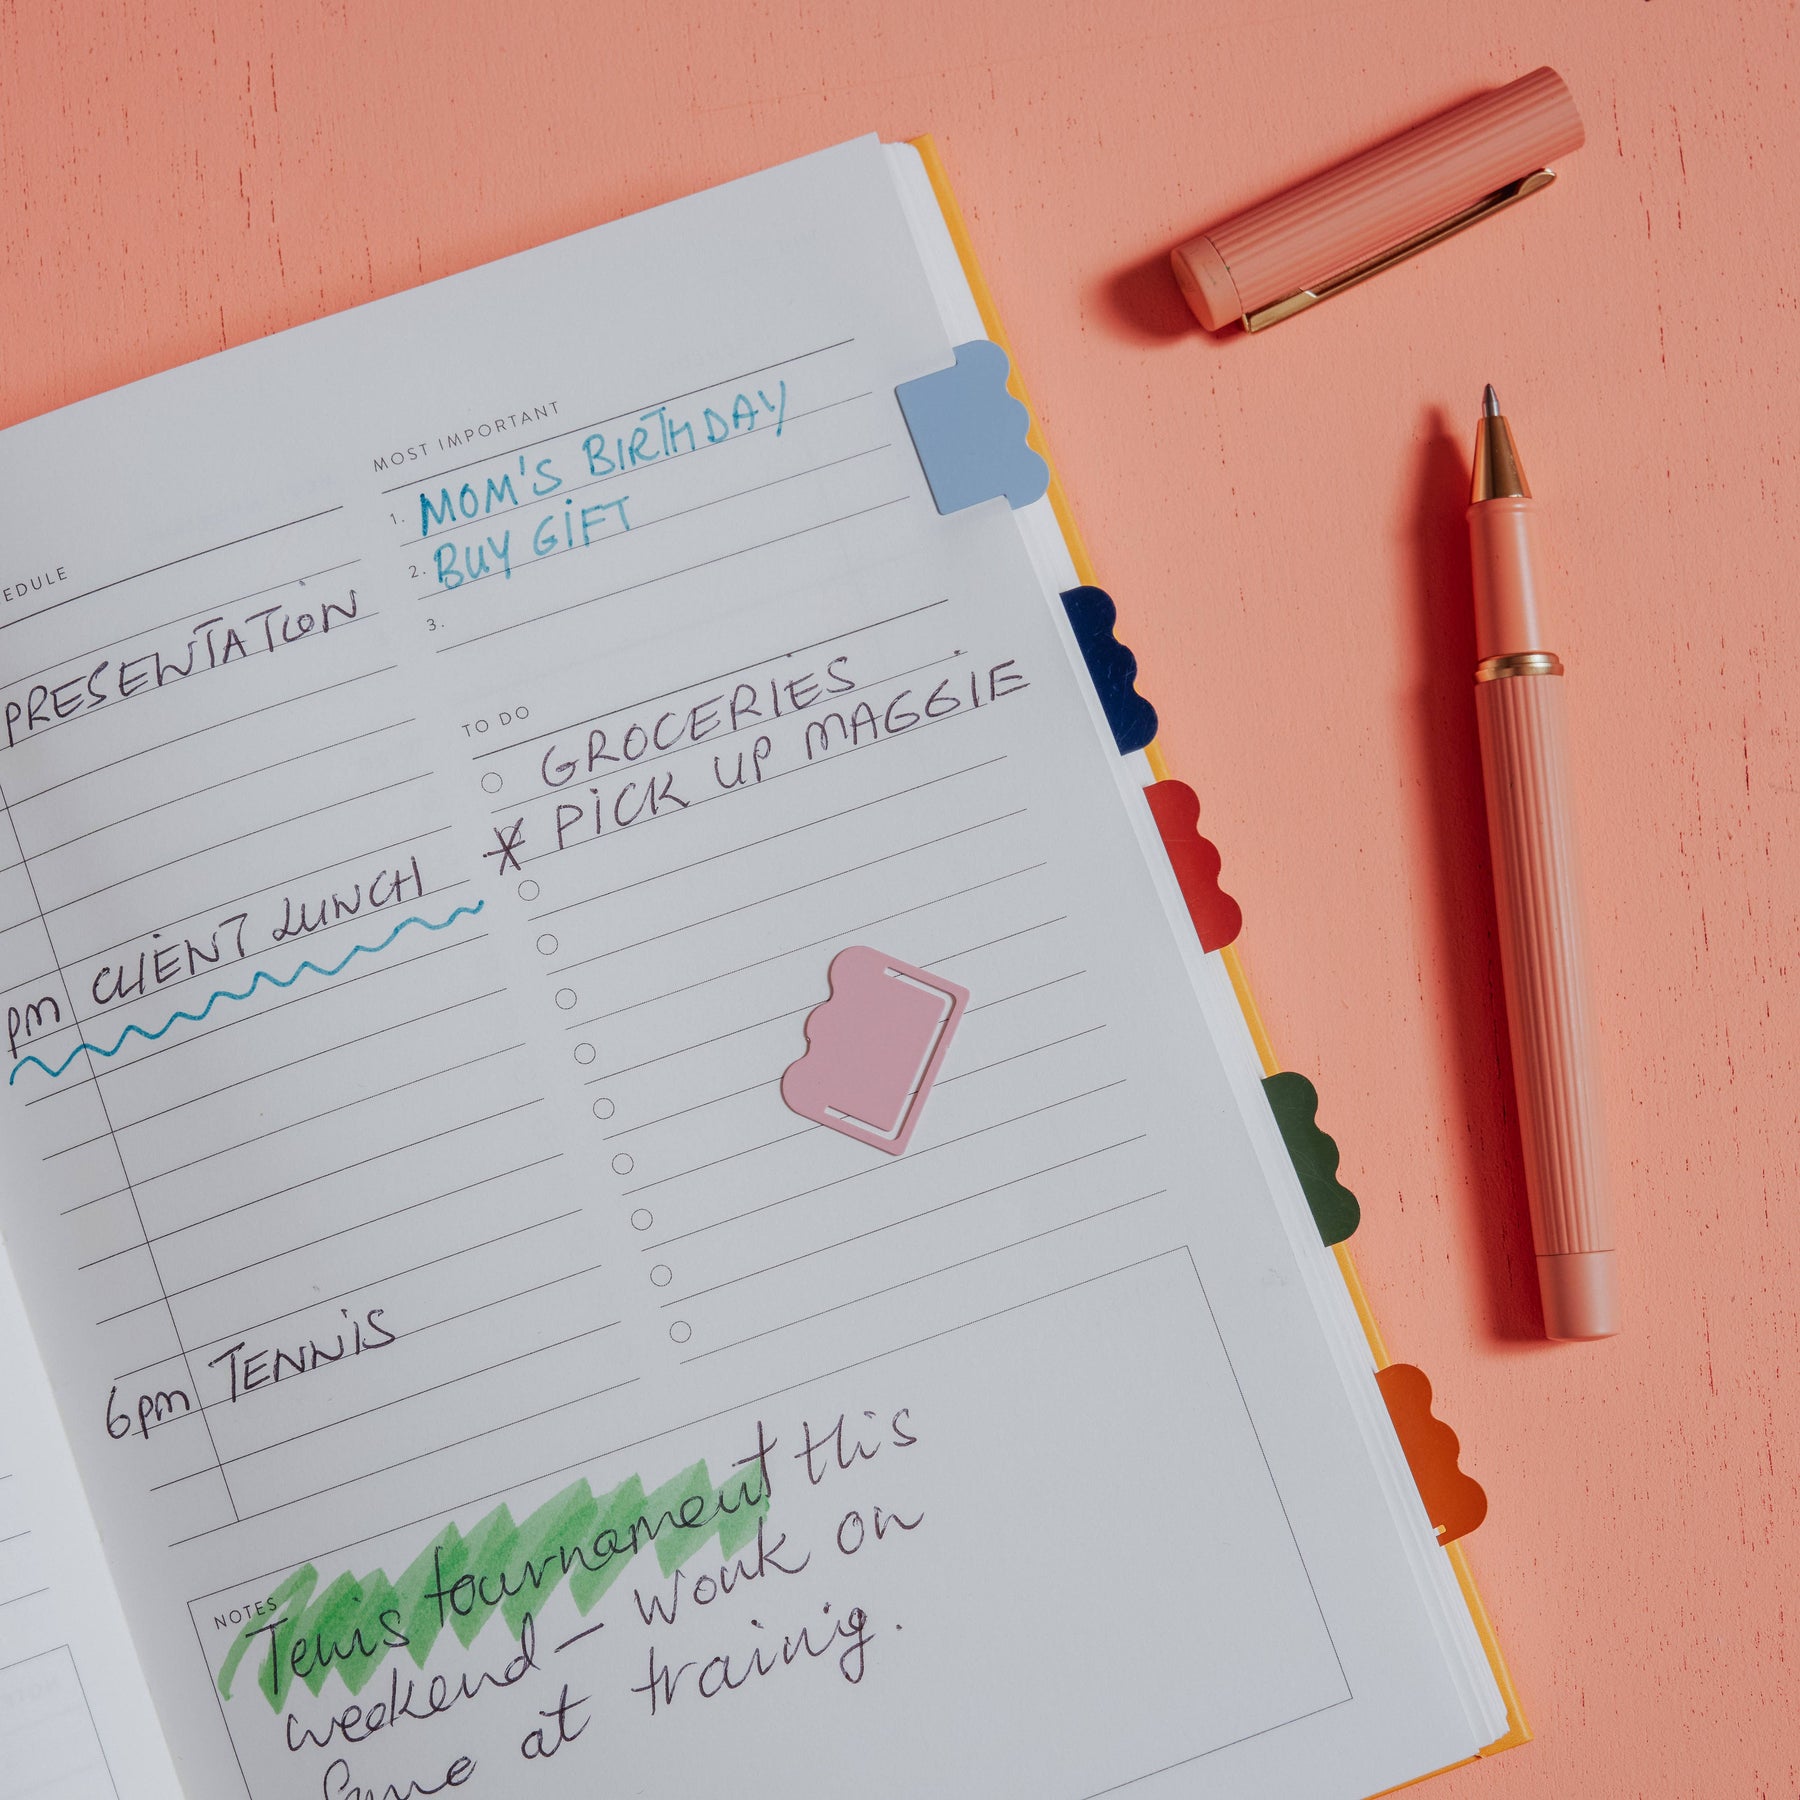 EDULE
PRESENTATION
pm CLIENT LUNCH
6pm TENNIS
MOST IMPORTANT
1. MOM'S BIRTHDAY
2. BUY GIFT
3.
TO DO
GROCERIES
* PICK UP MAGGIE
NOTES
Tennis tournament this
weekend - work on
at training.